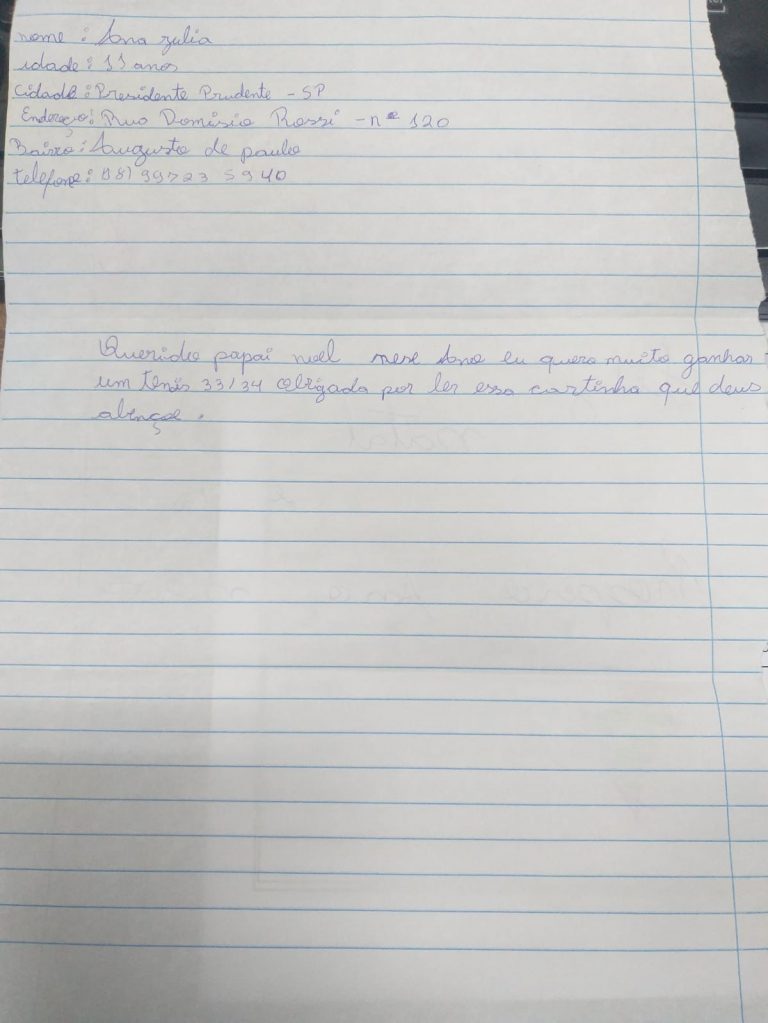 nome : Ana Julia
idade : 11 anos
Cidade : Presidente Prudente - SP
Endereço : Rua Domisio Rossi - nº 120
Bairro : Augusto de paula
telefone : 99723 5940
Querido papai noel nese Ano eu quero muito ganhar
um tenis 33/34 Obrigada por ler essa cartinha que deus
abençoe.